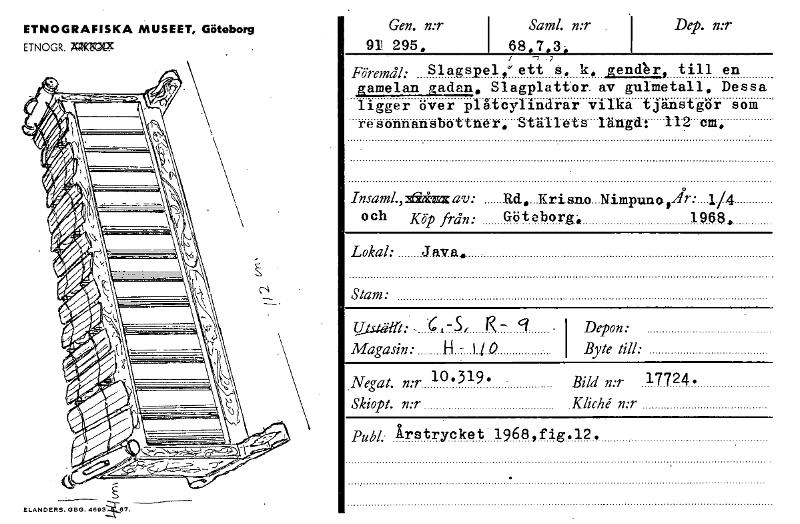 ETNOGRAFISKA MUSEET, Göteborg
ETNOGR.
112 cm
44 cm
ELANDERS, GBG. 4693 67.
Gen. n:r Saml. n:r Dep. n:r
91 295. 68.7.3.
Föremål: Slagspel, ett s. k. gender, till en
gamelan gadan. Slagplattor av gulmetall. Dessa
ligger över plåtcylindrar vilka tjänstgör som
resonnansbottner. Ställets längd: 112 cm.
Insaml., av: Rd. Krisno Nimpuno, År: 1/4
och Köp från: Göteborg. 1968.
Lokal: Java.
Stam:
Utställt: 6.-S, R-9 Depon:
Magasin: H-110 Byte till:
Negat. n:r 10.319. Bild n:r 17724.
Skiopt. n:r Kliché n:r
Publ. Årstrycket 1968,fig.12.